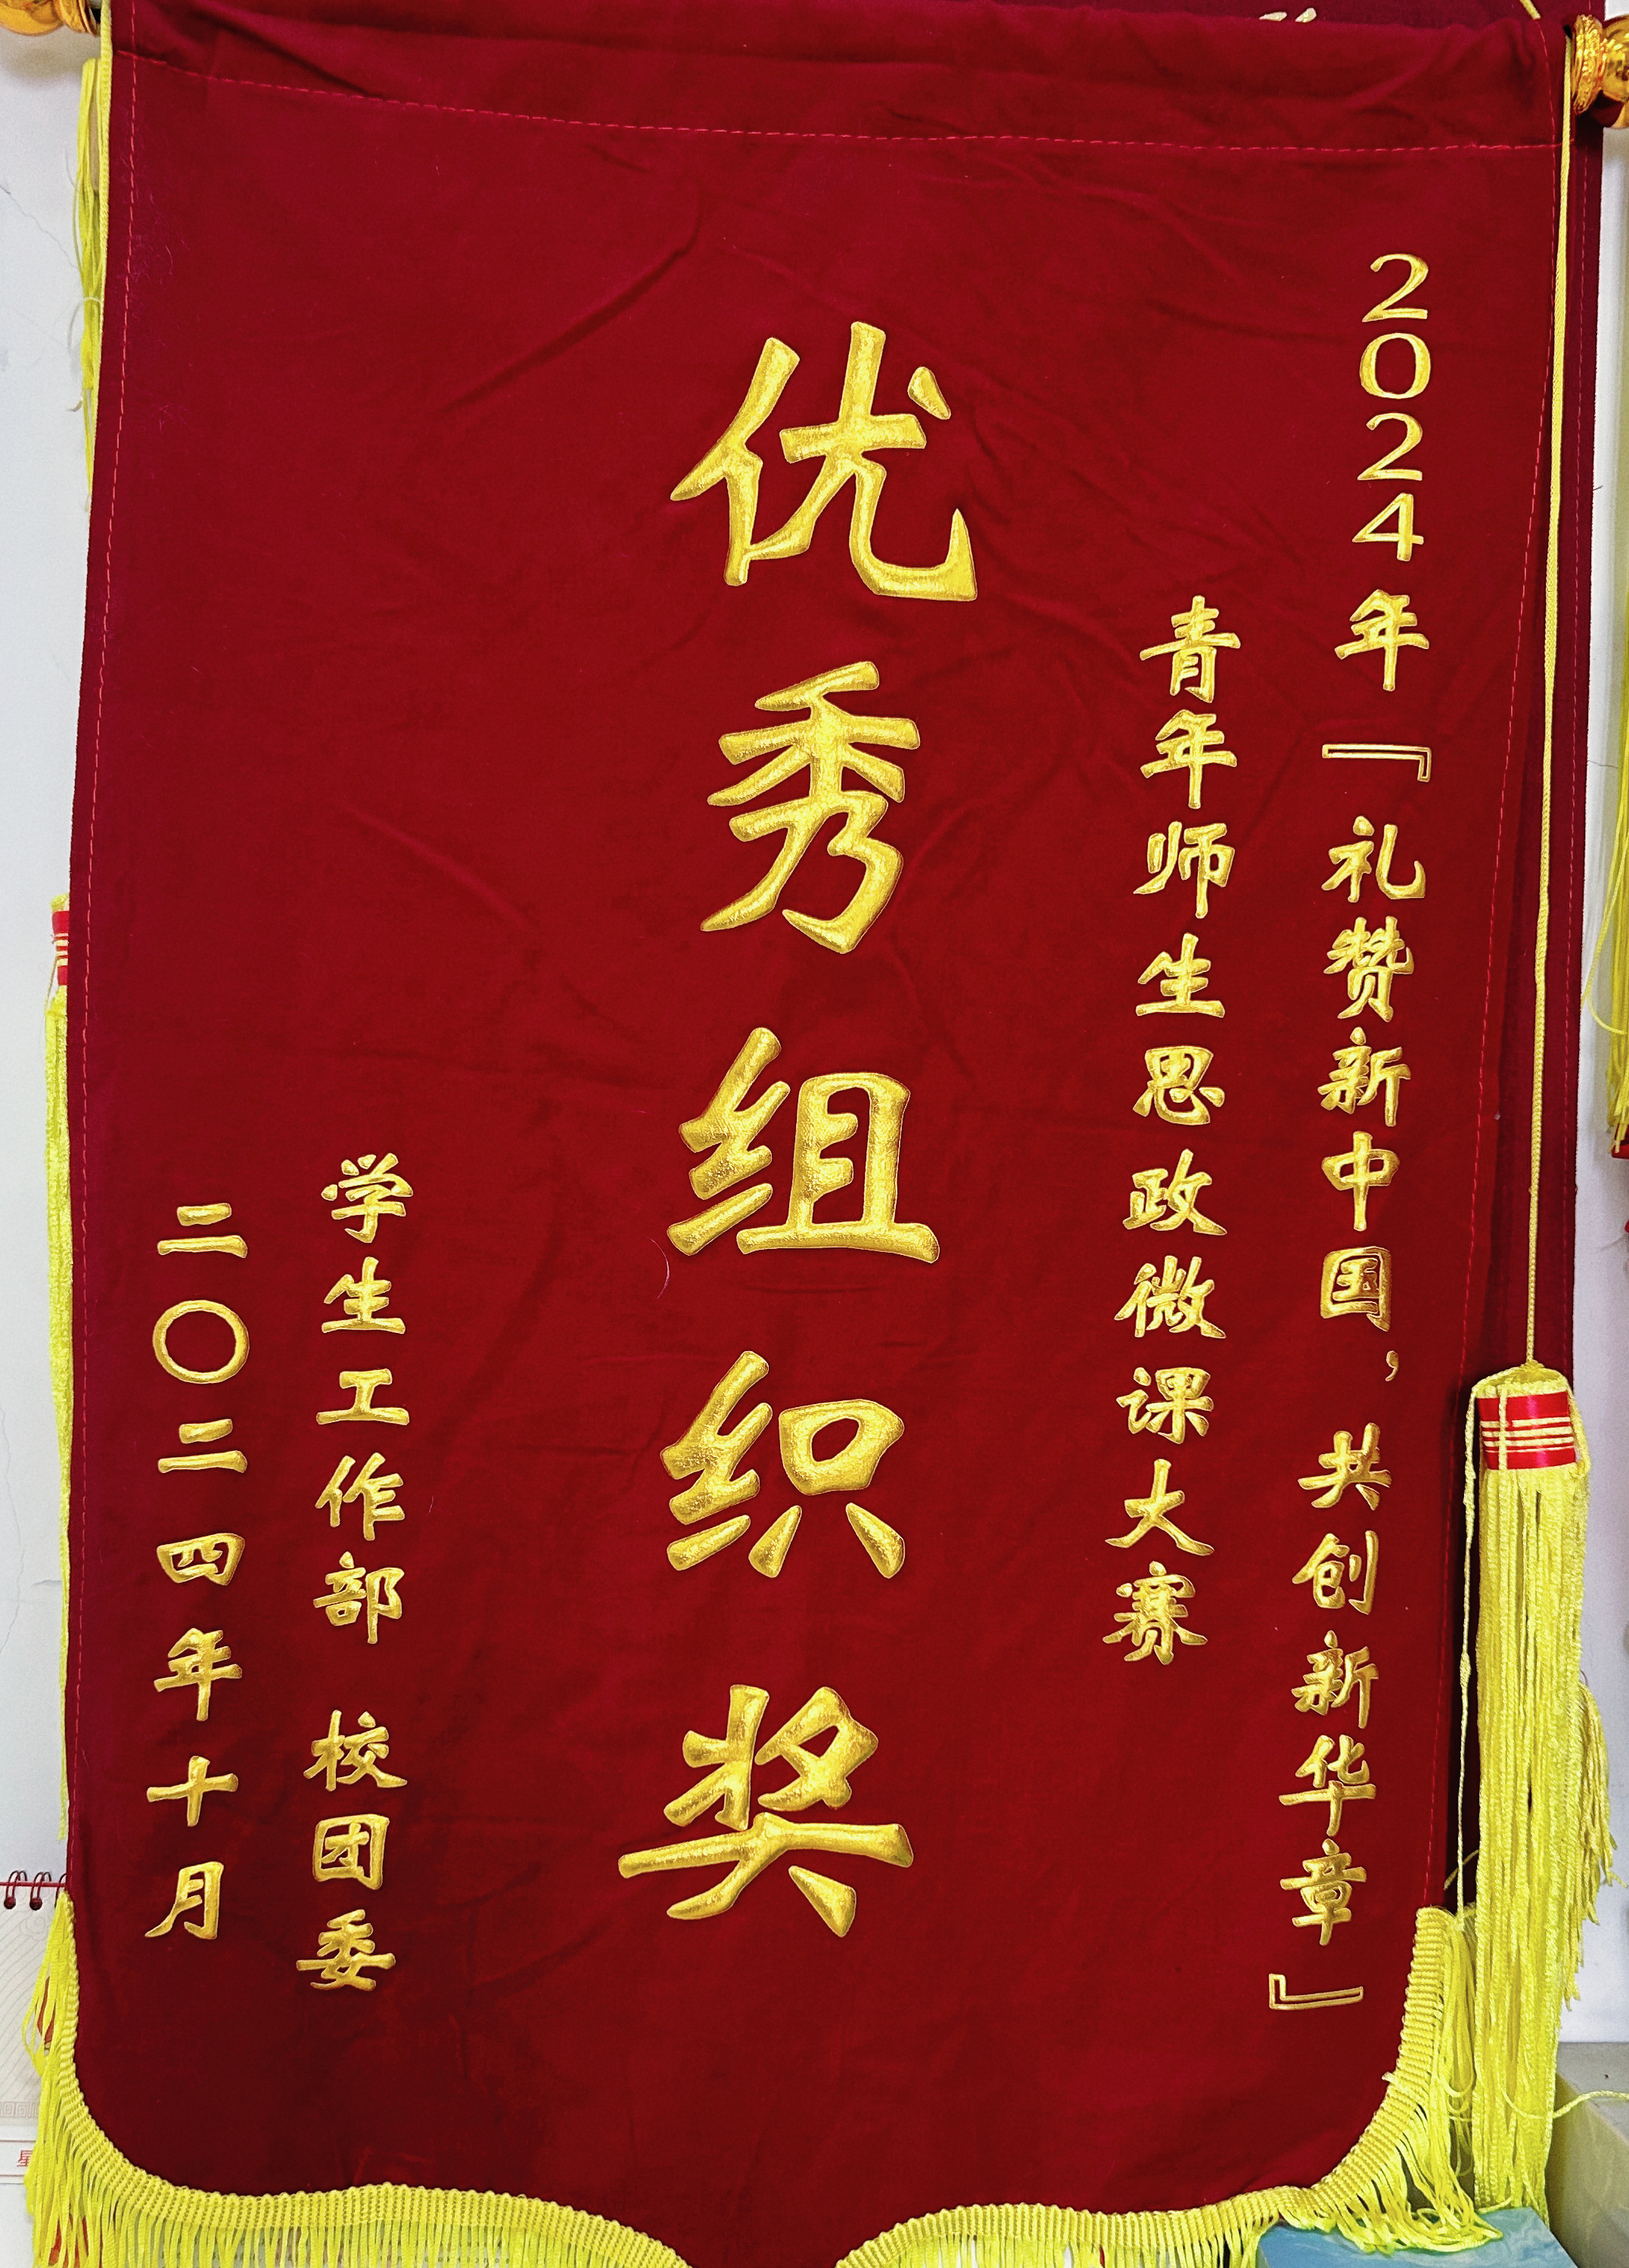 2024年『礼赞新中国，共创新华章』
青年师生思政微课大赛
优秀组织奖
学生工作部 校团委
二〇二四年十月